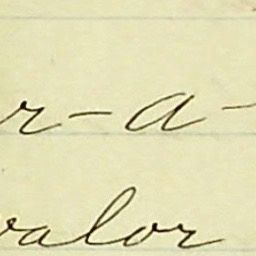 r-a-
valor